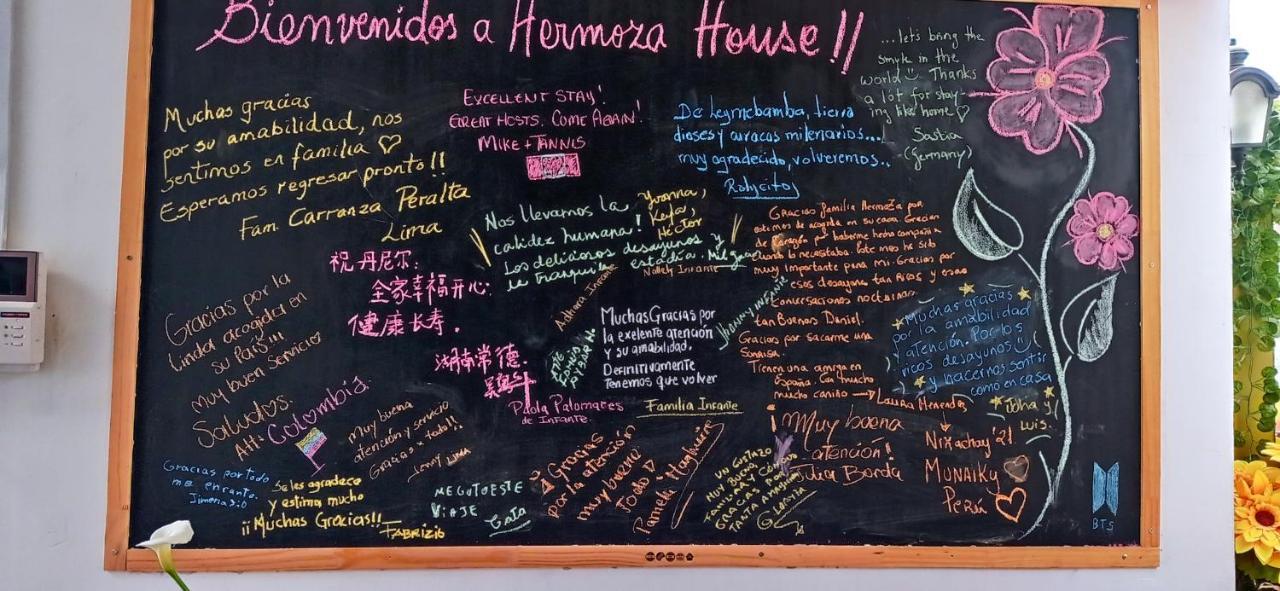 Bienvenidos a Hermoza House!!
Muchas gracias
por su amabilidad, nos
sentimos en familia ♡
Esperamos regresar pronto!!
Fam. Carranza Peralta
Lima
EXCELLENT STAY!
GREAT HOSTS. COME AGAIN!
MIKE + TANNIS
De Leymebamba, tierra
dioses y curacas milenarios...
muy agradecido, volveremos..
Ralycitos
...let's bring the
smyle in the
world Thanks
a lot for stay-
ing like home ♡
Saskia
(Germany)
Nos llevamos la
calidez humana!
Los deliciosos desayunos y
la tranquila estadía. Mil gracias
Yvonna,
Keyla,
Héctor
祝丹尼尔:
全家幸福开心.
健康长寿.
湖南常德.
Gracias por la
linda acogida en
su País!!!
muy buen servicio
Saludos.
Att: Colombia.
Gracias familia Hermoza por
de corazón por haberme hecho compañía
cuando lo necesitaba. Este mes ha sido
muy importante para mi. Gracias por
esos desayunos tan ricos y esas
conversaciones nocturnas
tan Buenas Daniel.
Gracias por sacarme una
Sonrisa.
Tienen una amiga en
España. Con mucho
mucho cariño → Laura Menendez
Nolely Infante
Aithara Infante
Jhanny Infante
Muchas Gracias por
la exelente atención
y su amabilidad,
Definitivamente
Tenemos que volver
Paola Palomares
de Infante.
Familia Infante
Muchas gracias
por la amabilidad
y atención. Por los
ricos desayunos
y hacernos sentir
como en casa
Joha y
Luis.
Muy buena
atención y servicio
Gracias x todo!!
Jenny Lima
Gracias por todo
me encanto.
Jimena :D
Se les agradece
y estima mucho
¡¡Muchas Gracias!!
Fabrizio
ME GUTOESTE
VIAJE
Cata
Gracias
por la atención
muy bueno
todo ♡
Pamela Haquiur
UN GUSTAZO
MUY BUENA
GRACIAS POR
TANTA AMABILIDAD
Gloria
Muy buena
atención!
Julia Borda
Nixachay'21
MUNAIKY
Perú
BTS